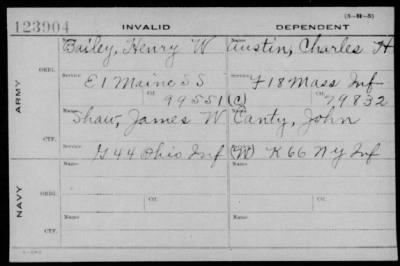 (3—31—5)
123904 INVALID DEPENDENT
Name Name
Bailey, Henry W Austin, Charles H
ORIG.
Service Service
E 1 Maine S S F 18 Mass Inf
ARMY
Ctf. Ctf.
99551 (C) 79832
Name Name
Shaw, James W Canty, John
CTF.
Service Service
G 44 Ohio Inf (W) K 66 N Y Inf
Name Name
ORIG.
Service Ctf. Service Ctf.
NAVY
Name Name
CTF.
Service Service